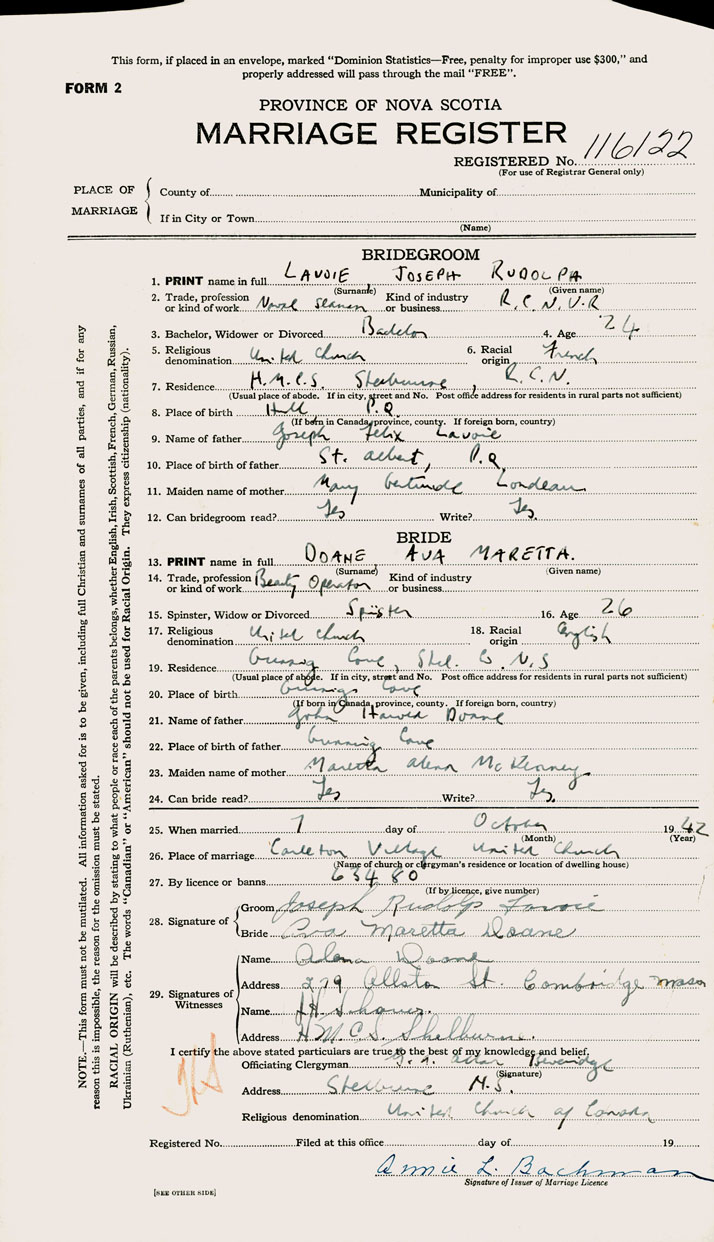 This form, if placed in an envelope, marked "Dominion Statistics—Free, penalty for improper use $300," and
properly addressed will pass through the mail "FREE".
FORM 2
PROVINCE OF NOVA SCOTIA
MARRIAGE REGISTER
REGISTERED No. 116122
(For use of Registrar General only)
PLACE OF MARRIAGE
County of Municipality of
If in City or Town
(Name)
BRIDEGROOM
1. PRINT name in full LAVOIE JOSEPH RUDOLPH
(Surname) (Given name)
2. Trade, profession or kind of work Naval Seaman Kind of industry or business R.C.N.V.R
3. Bachelor, Widower or Divorced Bachelor 4. Age 24
5. Religious denomination United Church 6. Racial origin French
7. Residence H.M.C.S. Shelburne, R.C.N.
(Usual place of abode. If in city, street and No. Post office address for residents in rural parts not sufficient)
8. Place of birth Hull P.Q.
(If born in Canada, province, county. If foreign born, country)
9. Name of father Joseph Felix Lavoie
10. Place of birth of father St. Albert, P.Q.
11. Maiden name of mother Mary Gertrude
12. Can bridegroom read? Yes Write? Yes.
BRIDE
13. PRINT name in full DOANE AVA MARETTA.
(Surname) (Given name)
14. Trade, profession or kind of work Beauty Operator Kind of industry or business
15. Spinster, Widow or Divorced Spinster 16. Age 26
17. Religious denomination United Church 18. Racial origin English
19. Residence Gunning Cove, Shel. Co N.S
(Usual place of abode. If in city, street and No. Post office address for residents in rural parts not sufficient)
20. Place of birth Gunning Cove
(If born in Canada, province, county. If foreign born, country)
21. Name of father John Doane
22. Place of birth of father Gunning Cove
23. Maiden name of mother Maretta McKenney
24. Can bride read? Yes Write? Yes.
25. When married 7 day of October 1942
(Month) (Year)
26. Place of marriage Carleton Village United Church
(Name of church or clergyman's residence or location of dwelling house)
27. By licence or banns 63480
(If by licence, give number)
28. Signature of
Groom Joseph Rudolph Lavoie
Bride Ava Maretta Doane
29. Signatures of Witnesses
Name Doane
Address 279 Allston St. Cambridge Mass
Name
Address H.M.C.S. Shelburne.
I certify the above stated particulars are true to the best of my knowledge and belief,
Officiating Clergyman Beveridge
(Signature)
Address Shelburne N.S.
Religious denomination United Church of Canada
Registered No. Filed at this office day of 19
Annie L. Bachman
Signature of Issuer of Marriage Licence
[SEE OTHER SIDE]
NOTE.—This form must not be mutilated. All information asked for is to be given, including full Christian and surnames of all parties, and if for any
reason this is impossible, the reason for the omission must be stated.
RACIAL ORIGIN will be described by stating to what people or race each of the parents belongs, whether English, Irish, Scottish, French, German, Russian,
Ukrainian (Ruthenian), etc. The words "Canadian" or "American" should not be used for Racial Origin. They express citizenship (nationality).